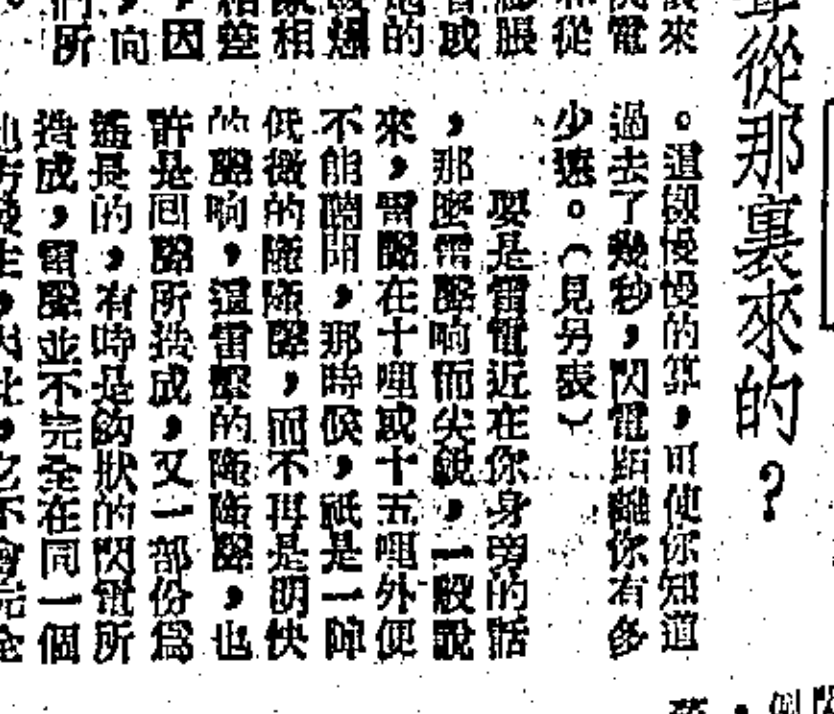 聲從那裏來的？
來
閃電
從
膨脹
或
的
爆
相
差
因
，向
們所
。這樣慢慢的算，可使你知道
過去了幾秒，閃電距離你有多
少遠。（見另表）
要是雷電近在你身旁的話
，那麼雷聲响而尖銳，一般說
來，雷聲在十哩或十五哩外便
不能聽聞，那時候，祇是一陣
低微的隆隆聲，而不再是明快
的聲响，這雷聲的隆隆聲，也
許是回聲所造成，又一部份爲
遙長的，有時是鈎狀的閃電所
造成，雷聲並不完全在同一個
地方發生，因此，它不會完全